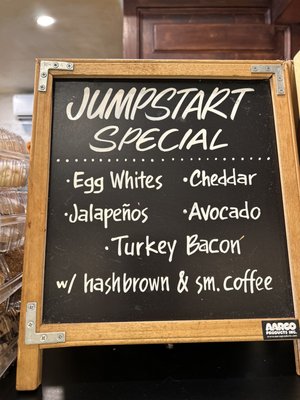 JUMPSTART
SPECIAL
· Egg Whites · Cheddar
· Jalapeños · Avocado
· Turkey Bacon
w/ hashbrown & sm. coffee
AARCO
PRODUCTS INC.